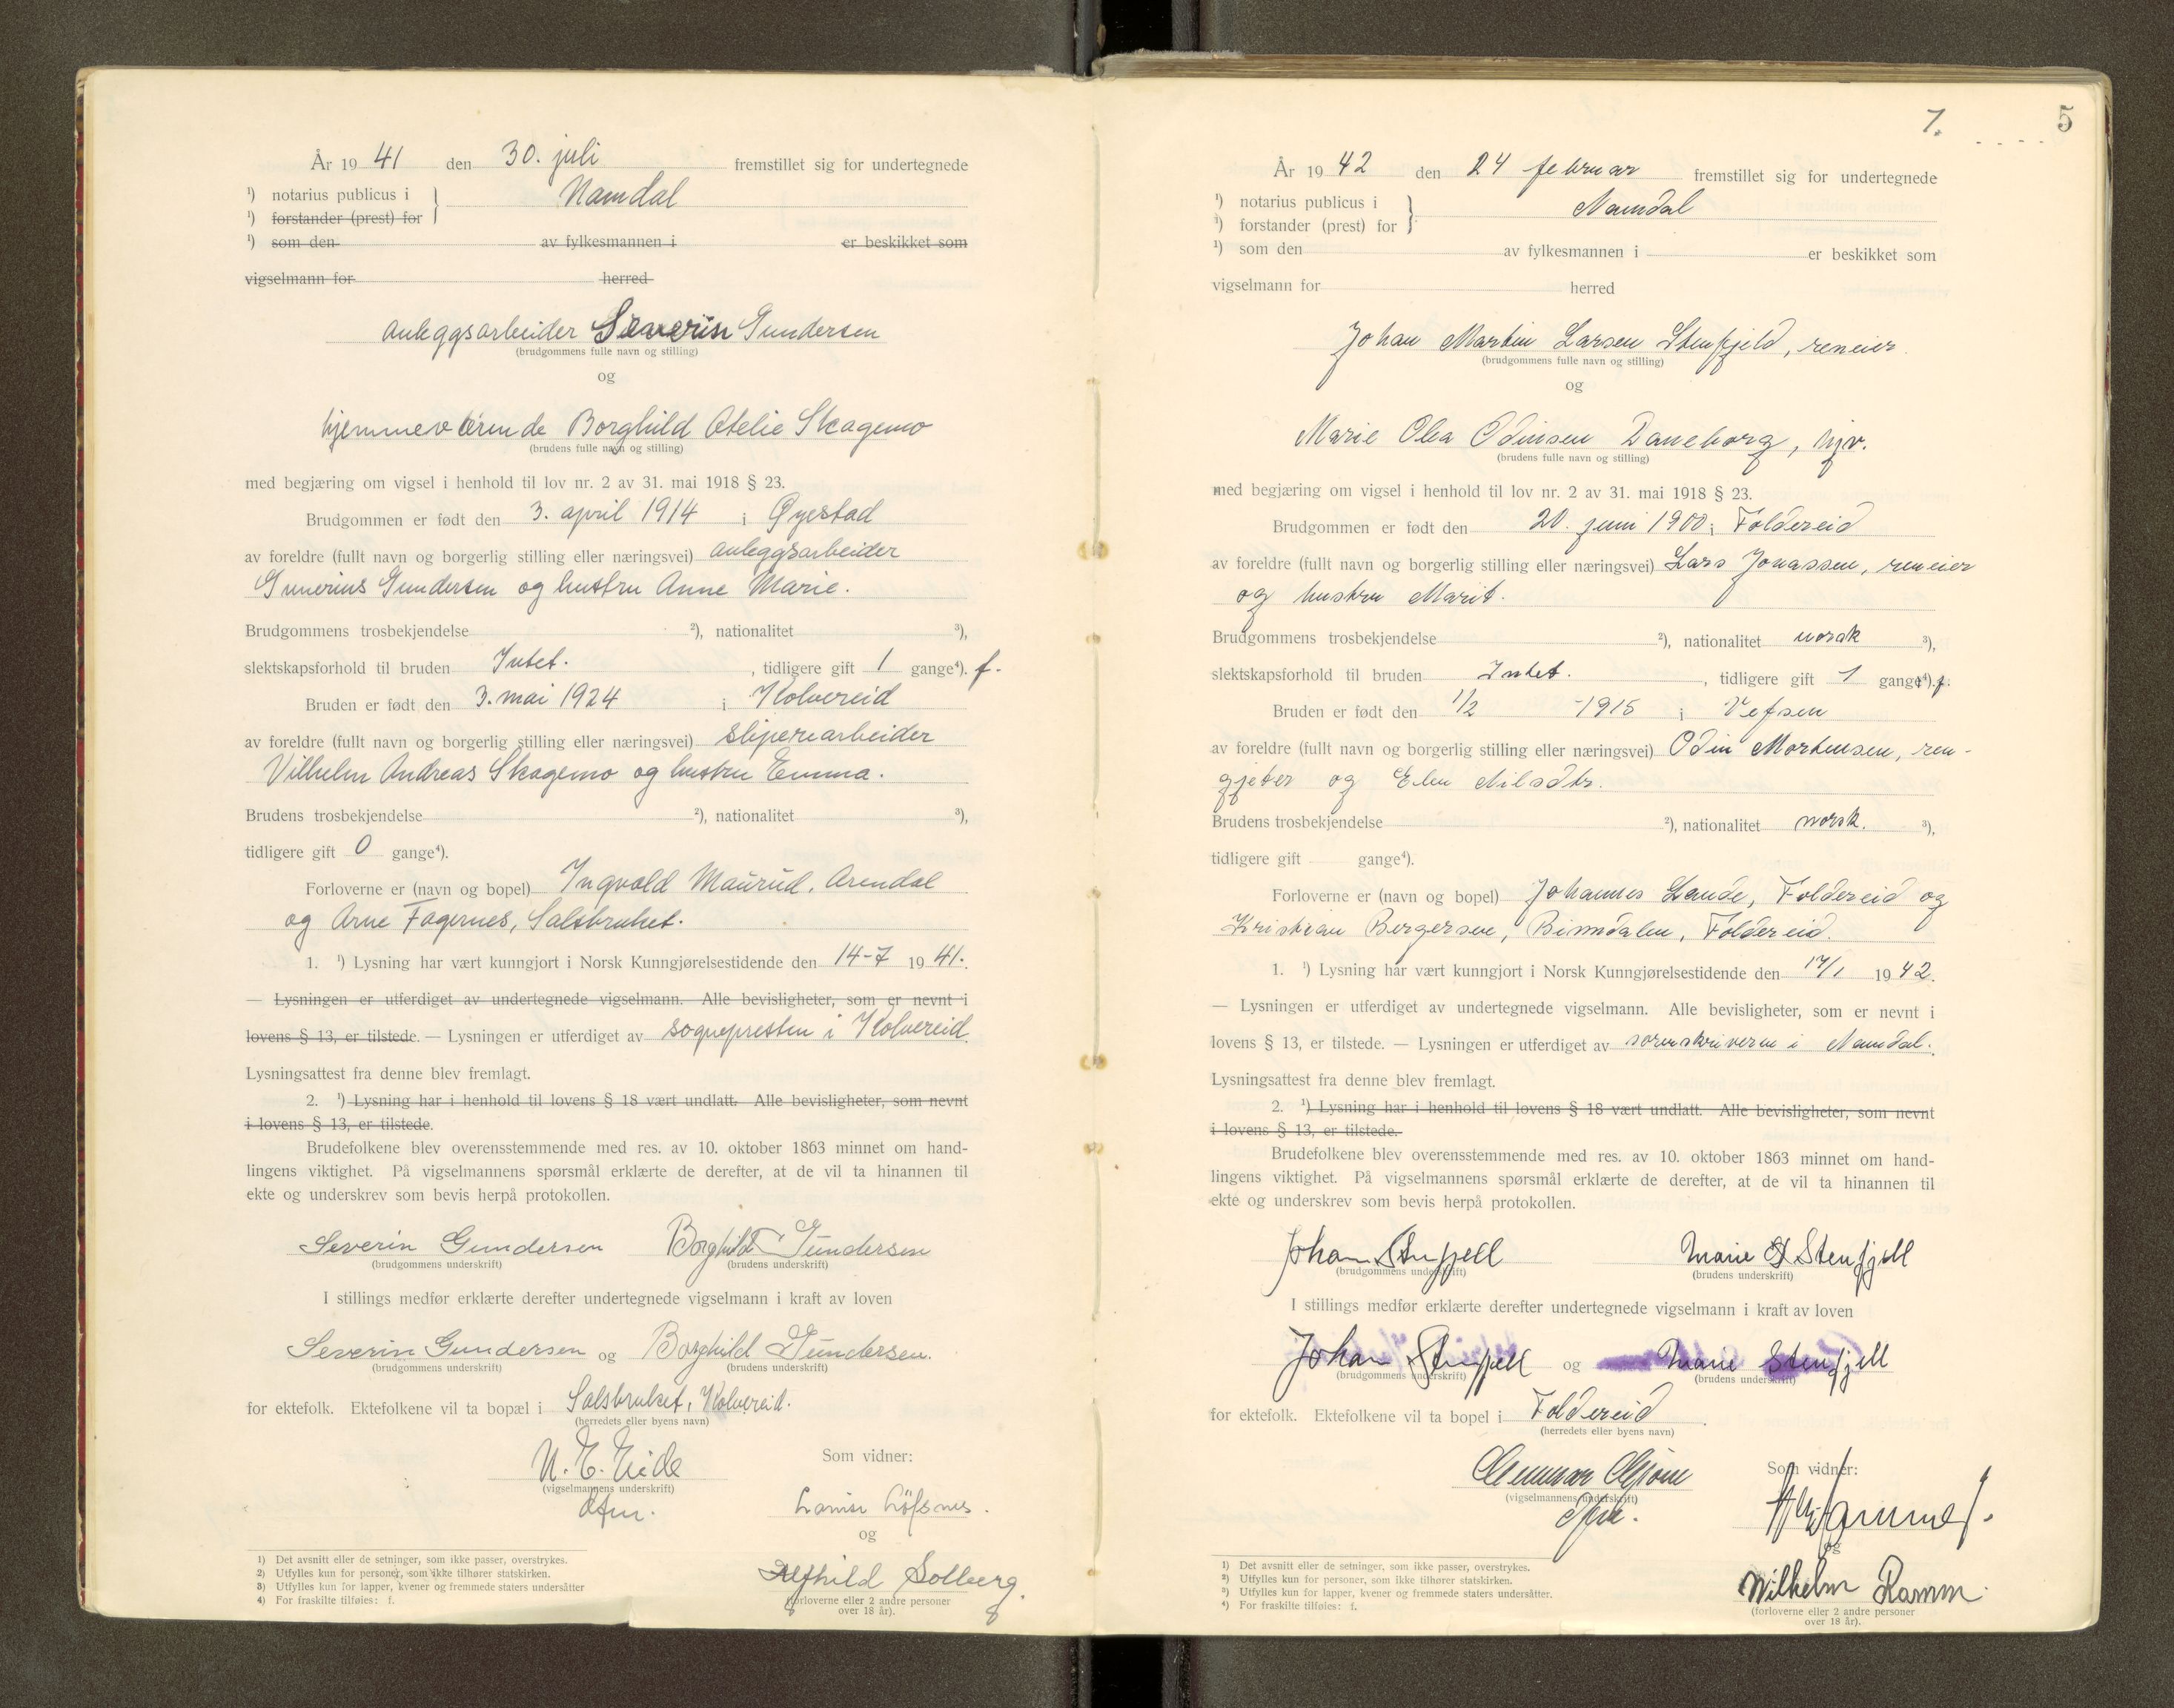 År 19 41 den 30. juli fremstillet sig for undertegnede
¹) notarius publicus i
¹) forstander (prest) for } Namdal
¹) som den av fylkesmannen i er beskikket som
vigselmann for herred
anleggsarbeider Severin Gundersen
(brudgommens fulle navn og stilling)
og
hjemmeværende Borghild Otelie Skagemo
(brudens fulle navn og stilling)
med begjæring om vigsel i henhold til lov nr. 2 av 31. mai 1918 § 23.
Brudgommen er født den 3. april 1914 i Øyestad
av foreldre (fullt navn og borgerlig stilling eller næringsvei) anleggsarbeider
Gunerius Gundersen og hustru Anne Marie.
Brudgommens trosbekjendelse ²), nationalitet ³),
slektskapsforhold til bruden Intet. , tidligere gift 1 gange⁴). f.
Bruden er født den 3. mai 1924 i Kolvereid
av foreldre (fullt navn og borgerlig stilling eller næringsvei) sliperiarbeider
Vilhelm Andreas Skagemo og hustru Emma.
Brudens trosbekjendelse ²), nationalitet ³),
tidligere gift 0 gange⁴).
Forloverne er (navn og bopel) Ingvald Maurud, Arendal
og Arne Fagernes, Salsbruket.
1. ¹) Lysning har vært kunngjort i Norsk Kunngjørelsestidende den 14-7 19 41.
— Lysningen er utferdiget av undertegnede vigselmann. Alle bevisligheter, som er nevnt i
lovens § 13, er tilstede. — Lysningen er utferdiget av sognepresten i Kolvereid.
Lysningsattest fra denne blev fremlagt.
2. ¹) Lysning har i henhold til lovens § 18 vært undlatt. Alle bevisligheter, som nevnt
i lovens § 13, er tilstede.
Brudefolkene blev overensstemmende med res. av 10. oktober 1863 minnet om hand-
lingens viktighet. På vigselmannens spørsmål erklærte de derefter, at de vil ta hinannen til
ekte og underskrev som bevis herpå protokollen.
Severin Gundersen Borghild Gundersen
(brudgommens underskrift) (brudens underskrift)
I stillings medfør erklærte derefter undertegnede vigselmann i kraft av loven
Severin Gundersen og Borghild Gundersen.
(brudgommens underskrift) (brudens underskrift)
for ektefolk. Ektefolkene vil ta bopæl i Salsbruket, Kolvereid.
(herredets eller byens navn)
N. E. Eide Som vidner:
(vigselmannens underskrift)
dfm. Löfsnes.
og
Alfhild Solberg.
(forloverne eller 2 andre personer
over 18 år).
1) Det avsnitt eller de setninger, som ikke passer, overstrykes.
2) Utfylles kun for personer, som ikke tilhører statskirken.
3) Utfylles kun for lapper, kvener og fremmede staters undersåtter
4) For fraskilte tilføies: f.
7. 5
År 19 42 den 24 februar fremstillet sig for undertegnede
¹) notarius publicus i
¹) forstander (prest) for } Namdal
¹) som den av fylkesmannen i er beskikket som
vigselmann for herred
Johan Martin Larsen Stenfjeld, reneier
(brudgommens fulle navn og stilling)
og
Marie Olea Odinsen Daneborg, hjv.
(brudens fulle navn og stilling)
med begjæring om vigsel i henhold til lov nr. 2 av 31. mai 1918 § 23.
Brudgommen er født den 20. juni 1900 i Foldereid
av foreldre (fullt navn og borgerlig stilling eller næringsvei) Lars Jonassen, reneier
og hustru Marit.
Brudgommens trosbekjendelse ²), nationalitet norsk ³),
slektskapsforhold til bruden Intet. , tidligere gift 1 gange⁴). f.
Bruden er født den 1/2 -1915 i Vefsen
av foreldre (fullt navn og borgerlig stilling eller næringsvei) Odin Mortensen, ren-
gjeter og Elen Nilsdtr.
Brudens trosbekjendelse ²), nationalitet norsk. ³),
tidligere gift gange⁴).
Forloverne er (navn og bopel) Johannes Lande, Foldereid og
Kristian Bergersen, Binndalen, Foldereid.
1. ¹) Lysning har vært kunngjort i Norsk Kunngjørelsestidende den 17/1 19 42.
— Lysningen er utferdiget av undertegnede vigselmann. Alle bevisligheter, som er nevnt i
lovens § 13, er tilstede. — Lysningen er utferdiget av sorenskriveren i Namdal.
Lysningsattest fra denne blev fremlagt.
2. ¹) Lysning har i henhold til lovens § 18 vært undlatt. Alle bevisligheter, som nevnt
i lovens § 13, er tilstede.
Brudefolkene blev overensstemmende med res. av 10. oktober 1863 minnet om hand-
lingens viktighet. På vigselmannens spørsmål erklærte de derefter, at de vil ta hinannen til
ekte og underskrev som bevis herpå protokollen.
Johan Stenfjell Marie O Stenfjell
(brudgommens underskrift) (brudens underskrift)
I stillings medfør erklærte derefter undertegnede vigselmann i kraft av loven
Johan Stenfjell og Marie Stenfjell
(brudgommens underskrift) (brudens underskrift)
for ektefolk. Ektefolkene vil ta bopel i Foldereid.
(herredets eller byens navn)
Som vidner:
(vigselmannens underskrift)
og
Wilhelm Ramm.
(forloverne eller 2 andre personer
over 18 år).
1) Det avsnitt eller de setninger, som ikke passer, overstrykes.
2) Utfylles kun for personer, som ikke tilhører statskirken.
3) Utfylles kun for lapper, kvener og fremmede staters undersåtter.
4) For fraskilte tilføies: f.